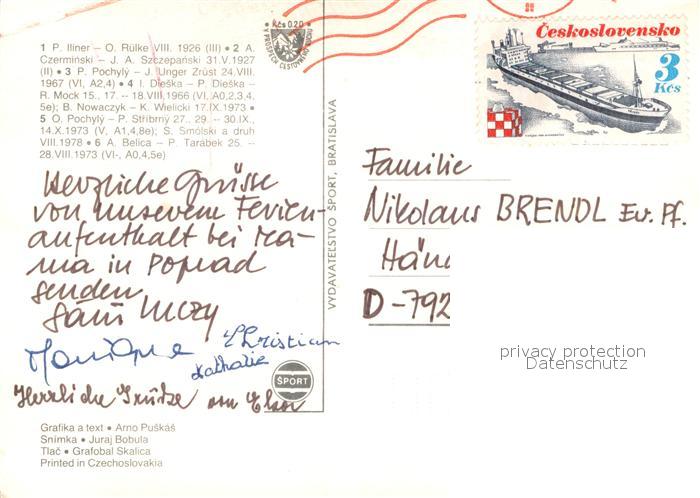 1 P. Illner – O. Rülke VIII. 1926 (III) • 2 A.
Czermiński – J. A. Szczepański 31.V.1927
(II) • 3 P. Pochylý – J. Unger Zrúst 24.VIII.
1967 (VI, A2,4) • 4 I. Dieška – P. Dieška –
R. Mock 15., 17. – 18.VIII.1966 (VI,A0,2,3,4,
5e); B. Nowaczyk – K. Wielicki 17.IX.1973 •
5 O. Pochylý – P. Stribrný 27., 29. – 30.IX.,
14.X.1973 (V, A1,4,8e); S. Smólski a druh
VIII.1978 • 6 A. Belica – P. Tarábek 25. –
28.VIII.1973 (VI-, A0,4,5e)
Kčs 0.20
Československo
3
Kčs
Herzliche Grüsse
von unserem Ferien-
aufenthalt bei Ma-
ma in Poprad
senden
Monique Christian
Nathalie
Herzliche Grüße von
VYDAVATEĽSTVO ŠPORT, BRATISLAVA
ŠPORT
Familie
Nikolaus BRENDL Ev. Pf.
Hän
D-792
privacy protection
Datenschutz
Grafika a text • Arno Puškáš
Snímka • Juraj Bobula
Tlač • Grafobal Skalica
Printed in Czechoslovakia